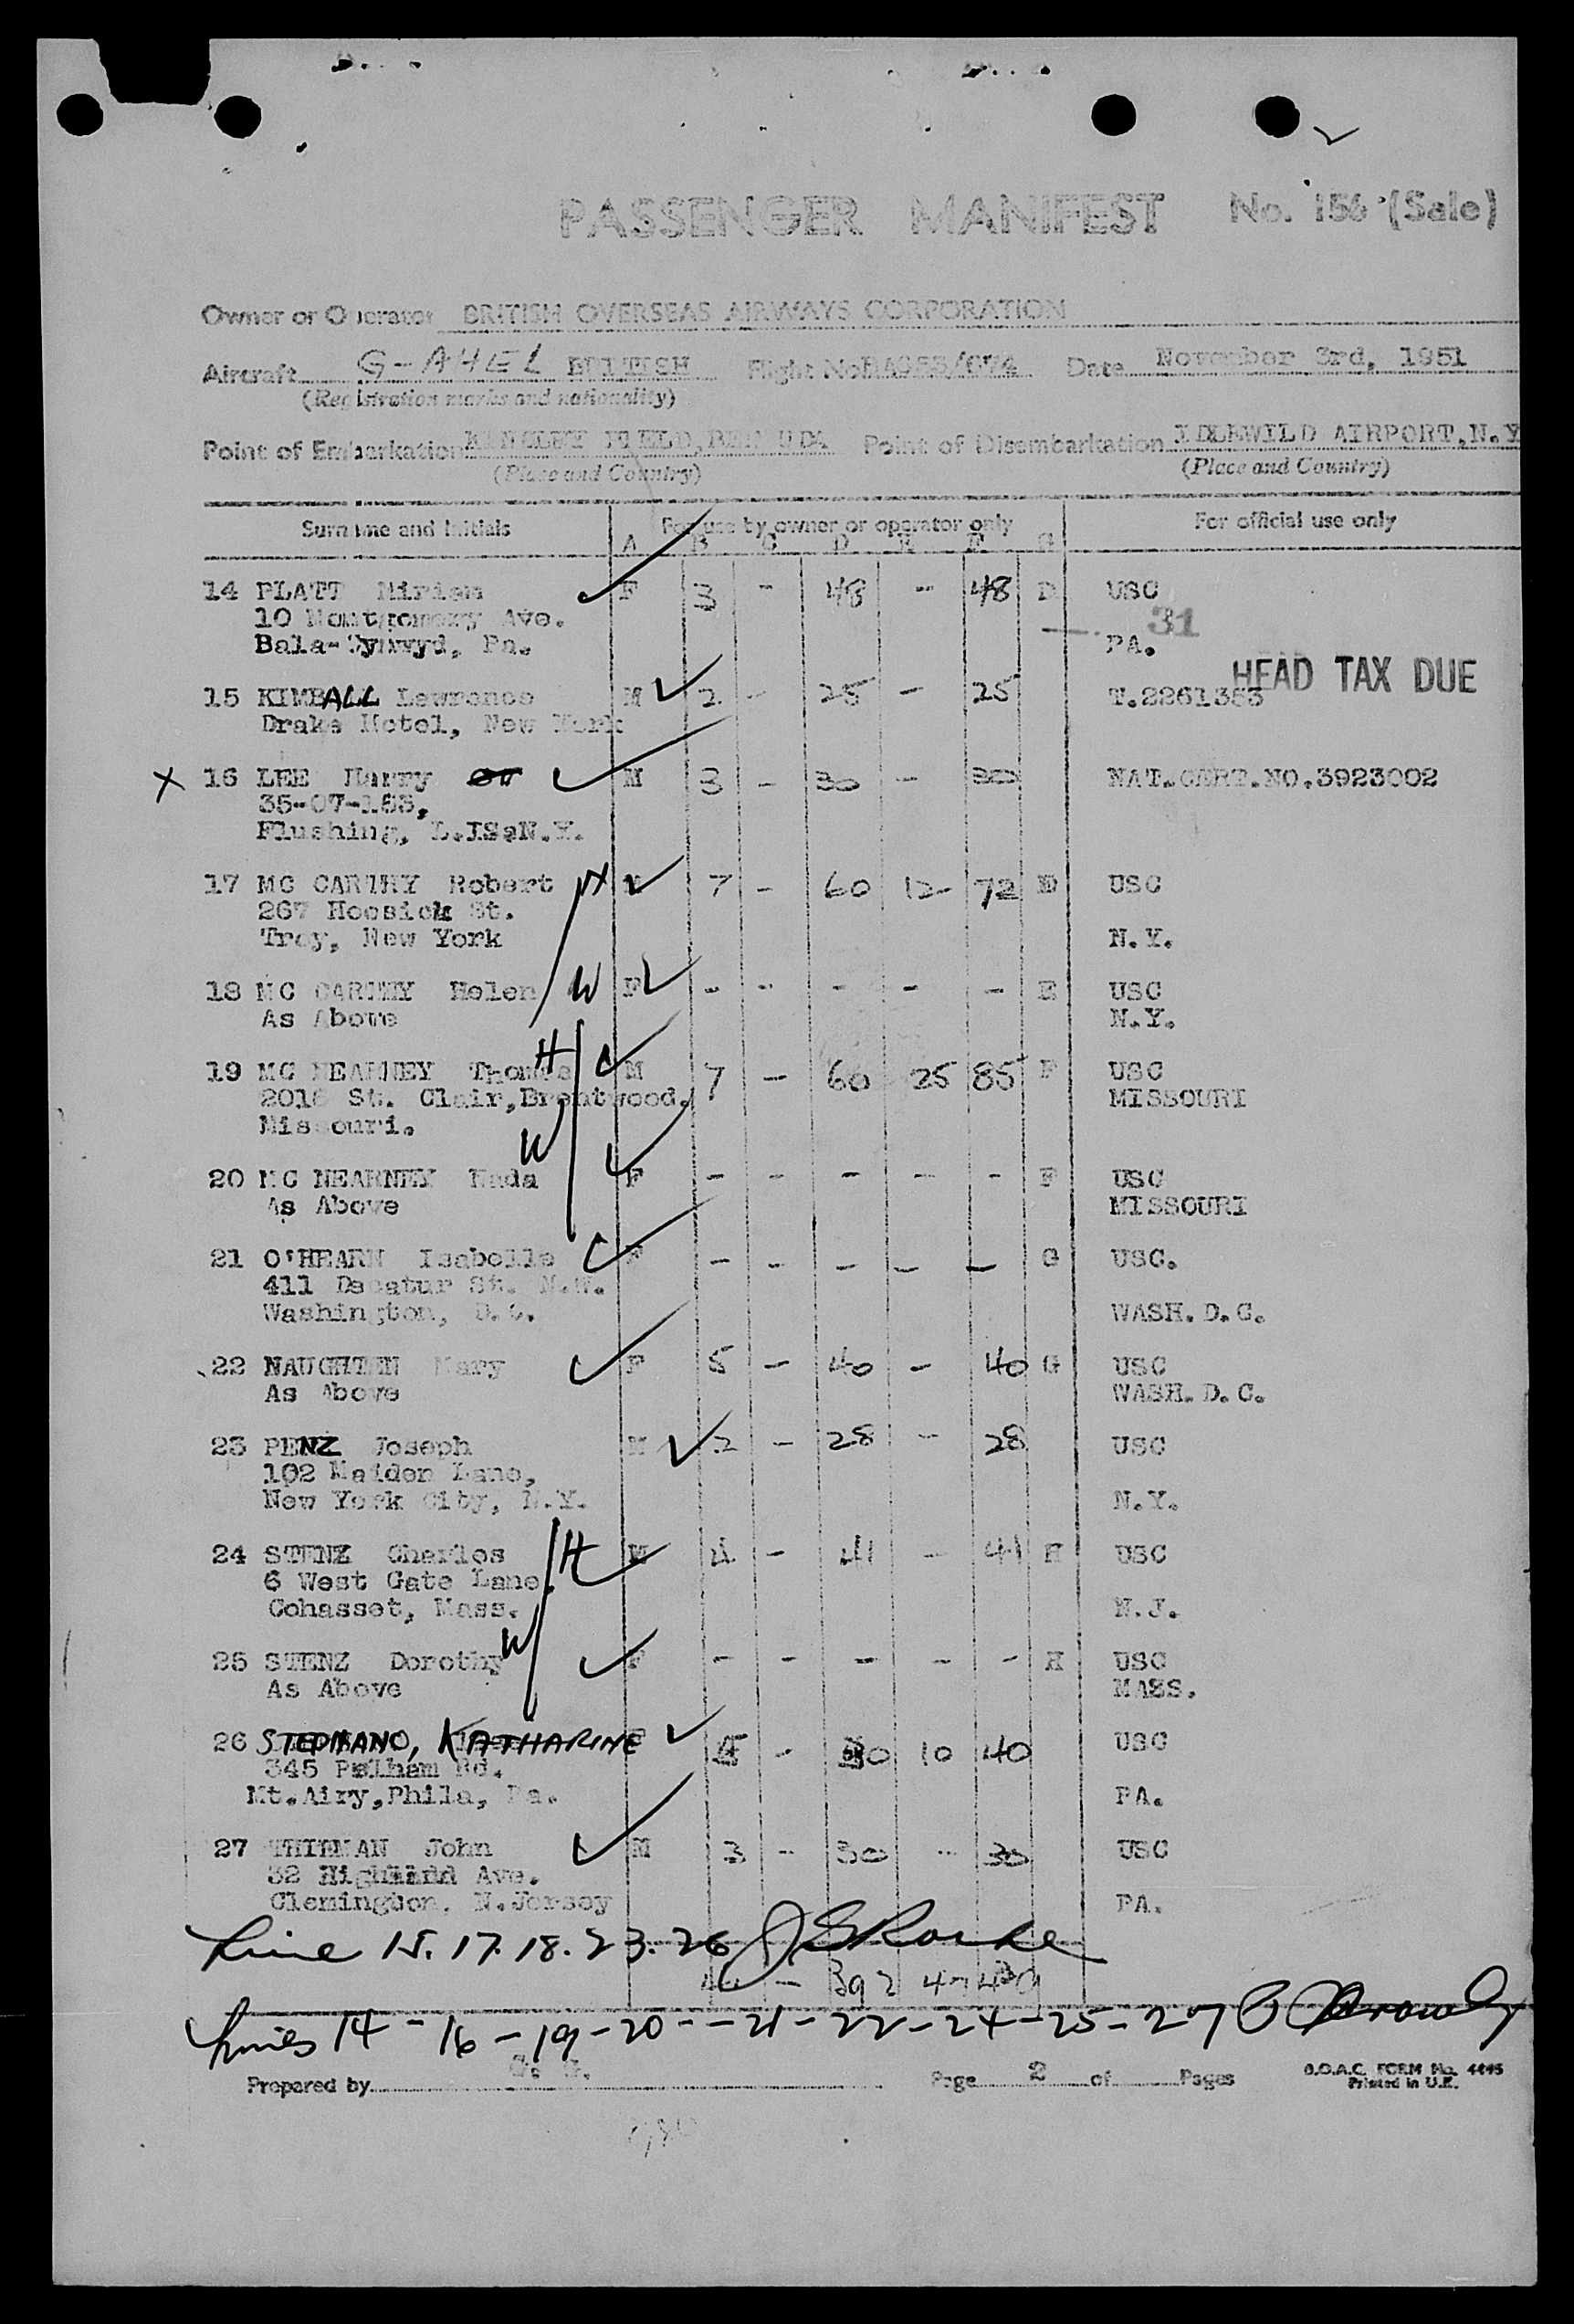 PASSENGER MANIFEST No. 156 (Sale)
Owner or Operator BRITISH OVERSEAS AIRWAYS CORPORATION
Aircraft G-AHEL BRITISH Flight No. Date November 3rd, 1951
(Registration marks and nationality)
Point of Embarkation KINDLEY FIELD, BERMUDA Point of Disembarkation IDLEWILD AIRPORT, N.Y
(Place and Country) (Place and Country)
Surname and Initials For use by owner or operator only For official use only
A B C D E F G
14 PLATT Miriam F 3 - 48 - 48 D USC
10 Montgomery Ave. 31
Bala-Cynwyd, Pa. PA.
HEAD TAX DUE
15 KIMBALL Lawrence M 2 - 25 - 25 T.2261353
Drake Hotel, New York
X 16 LEE Harry M 3 - 30 - 30 NAT.CERT.NO.3923002
35-07-163,
Flushing, L.I. N.Y.
17 MC CARTHY Robert H M 7 - 60 12- 72 E USC
267 Hoosick St.
Troy, New York N.Y.
18 MC CARTHY Helen W F - - - - - E USC
As Above N.Y.
19 MC NEARNEY Thomas H M 7 - 60 25 85 F USC
2016 St. Clair, Brentwood, MISSOURI
Missouri. W
20 MC NEARNEY Nada F - - - - - F USC
As Above MISSOURI
21 O'HEARN Isabelle F - - - - - G USC.
411 Decatur St. N.W.
Washington, D.C. WASH. D.C.
22 NAUGHTEN Mary F 5 - 40 - 40 G USC
As Above WASH. D.C.
23 PENZ Joseph M 2 - 28 - 28 USC
102 Maiden Lane,
New York City, N.Y. N.Y.
24 STENZ Charles H M 4 - 41 - 41 H USC
6 West Gate Lane,
Cohasset, Mass. N.J.
25 STENZ Dorothy W F - - - - - H USC
As Above MASS.
26 STEDMANO, KATHARINE F 4 - 30 10 40 USC
345 Pelham Rd.
Mt.Airy,Phila, Pa. PA.
27 John M 3 - 30 - 30 USC
32 Highland Ave.
Clemington, N.Jersey PA.
Line 15. 17. 18. 23. 26
- 392 47 439
Lines 14 - 16 - 19 - 20 - - 21 - 22 - 24 - 25 - 27
Prepared by Page 2 of Pages B.O.A.C. FORM No. 4445
Printed in U.K.